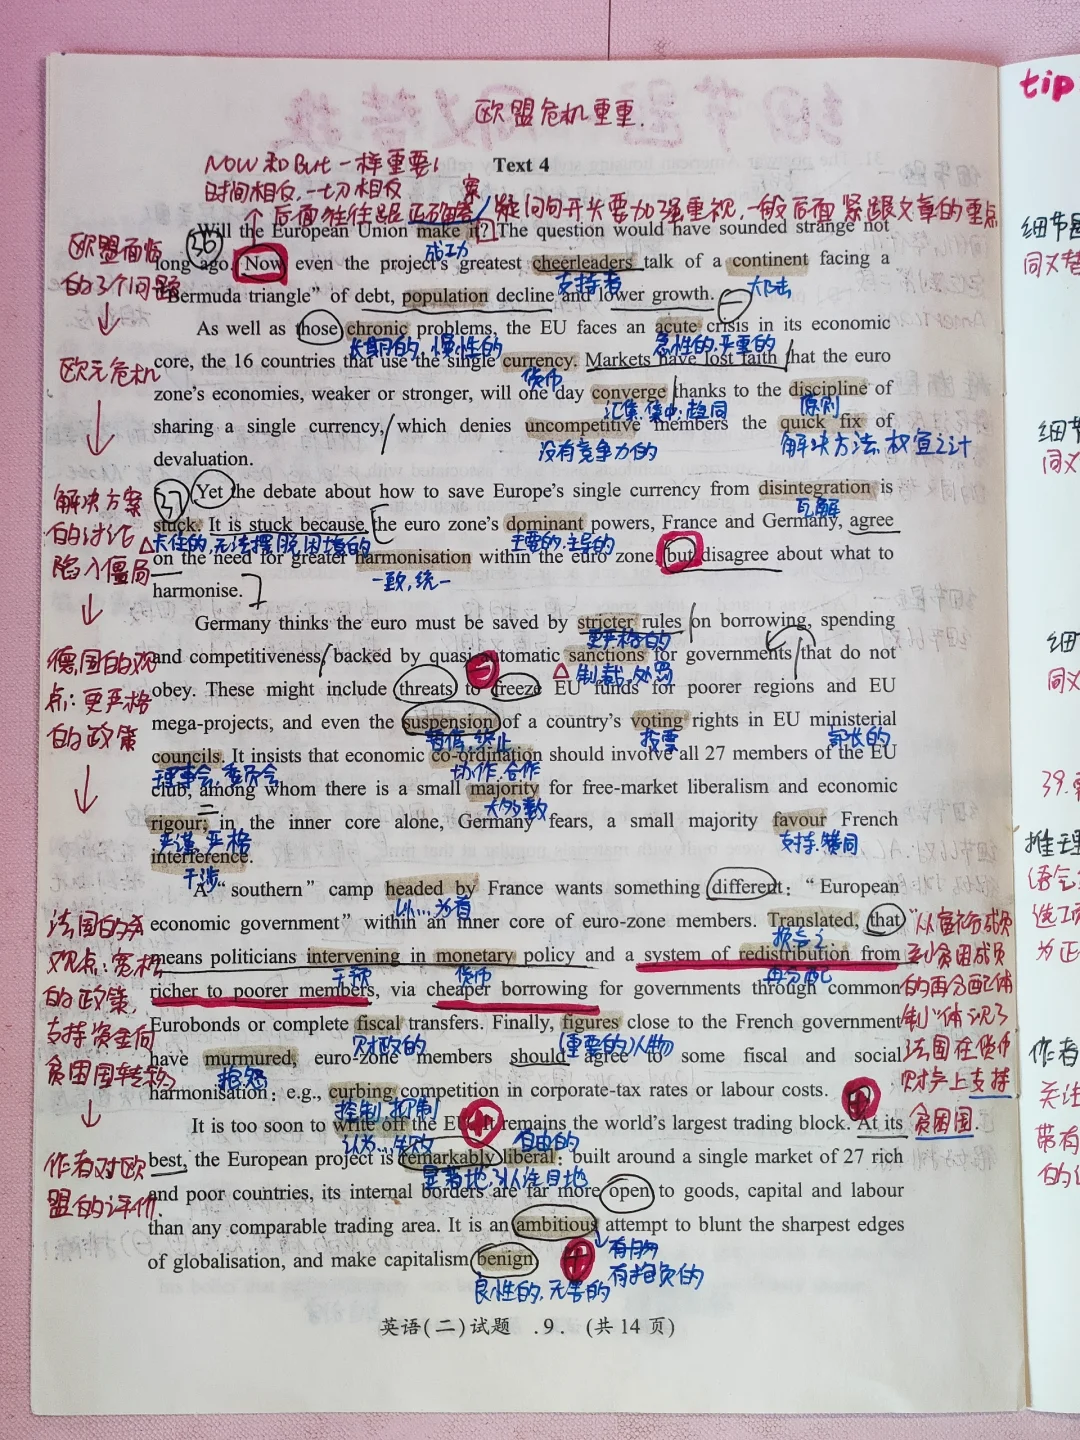 欧盟危机重重.
tip
NOW和But一样重要!
Text 4
时间相反,一切相反
案
个后面往往跟正确答/疑问句开头要加强重视,一般后面紧跟文章的重点
36
Will the European Union make it? The question would have sounded strange not
欧盟面临
的3个问题
成功
long ago. Now even the project's greatest cheerleaders talk of a continent facing a
支持者
大陆
"Bermuda triangle" of debt, population decline and lower growth.
As well as those chronic problems, the EU faces an acute crisis in its economic
长期的,慢性的
急性的,严重的
欧元危机
core, the 16 countries that use the single currency. Markets have lost faith that the euro
货币
zone's economies, weaker or stronger, will one day converge thanks to the discipline of
汇集,集中;趋同
原则
sharing a single currency, which denies uncompetitive members the quick fix of
没有竞争力的
解决方法,权宜之计
devaluation.
37
解决方案
的讨论
陷入僵局
Yet the debate about how to save Europe's single currency from disintegration is
瓦解
stuck. It is stuck because the euro zone's dominant powers, France and Germany, agree
卡住的,无法摆脱困境的
主要的,主导的
on the need for greater harmonisation within the euro zone, but disagree about what to
一致,统一
harmonise.
Germany thinks the euro must be saved by stricter rules on borrowing, spending
更严格的
德国的观
点:更严格
的政策
and competitiveness, backed by quasi-automatic sanctions for governments that do not
制裁,处罚
obey. These might include threats to freeze EU funds for poorer regions and EU
mega-projects, and even the suspension of a country's voting rights in EU ministerial
暂停,终止
投票
部长的
councils. It insists that economic co-ordination should involve all 27 members of the EU
理事会,委员会
协作,合作
club, among whom there is a small majority for free-market liberalism and economic
大多数
rigour; in the inner core alone, Germany fears, a small majority favour French
严谨,严格
支持,赞同
interference.
干涉
A "southern" camp headed by France wants something different: "European
以…为首
法国的
观点:宽松
的政策,
支持资金向
贫困国转移
economic government" within an inner core of euro-zone members. Translated, that
换言之
means politicians intervening in monetary policy and a system of redistribution from
干预
货币
再分配
richer to poorer members, via cheaper borrowing for governments through common
Eurobonds or complete fiscal transfers. Finally, figures close to the French government
财政的
(重要的)人物
have murmured, euro-zone members should agree to some fiscal and social
抱怨
harmonisation: e.g., curbing competition in corporate-tax rates or labour costs.
控制,抑制
"从富裕成员
到贫困成员
的再分配体
制"体现了
法国在货币
财产上支持
贫困国.
It is too soon to write off the EU. It remains the world's largest trading block. At its
认为…失败
自由的
作者对欧
盟的评价.
best, the European project is remarkably liberal: built around a single market of 27 rich
显著地,引人注目地
and poor countries, its internal borders are far more open to goods, capital and labour
than any comparable trading area. It is an ambitious attempt to blunt the sharpest edges
有抱负的
of globalisation, and make capitalism benign.
良性的,无害的
英语(二)试题 .9. (共14页)
细节
同义
细节
同义
细
同义
39.
推理
语气
选项
为正
作者
关注
带有
的